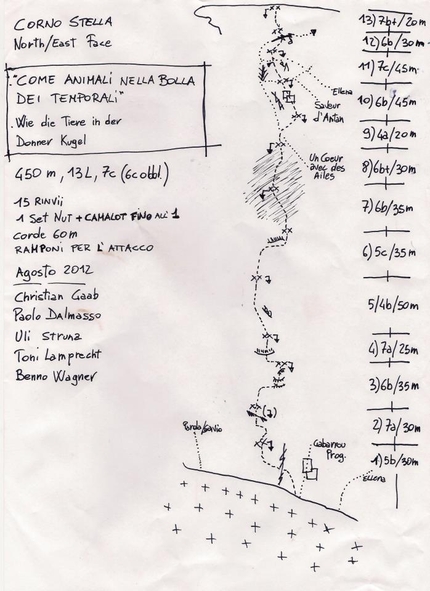 CORNO STELLA
North/East Face
"COME ANIMALI NELLA BOLLA
DEI TEMPORALI"
Wie die Tiere in der
Donner Kugel
450 m, 13L, 7c (6c obbl.)
15 RINVII
1 SET NUT + CAMALOT FINO ALL' 1
CORDE 60m
RAMPONI PER L'ATTACCO
Agosto 2012
Christian Gaab
Paolo Dalmasso
Uli Strunz
Toni Lamprecht
Benno Wagner
13) 7b+/20m
12) 6b/30m
11) 7c/45m
10) 6b/45m
9) 4a/20m
8) 6b+/30m
7) 6b/35m
6) 5c/35m
5) 4b/50m
4) 7a/25m
3) 6b/35m
2) 7a/30m
1) 5b/30m
Ellena
Saveur
d'Antan
Un Coeur
avec des
Ailes
Gabarrou
Prog.
Ellena